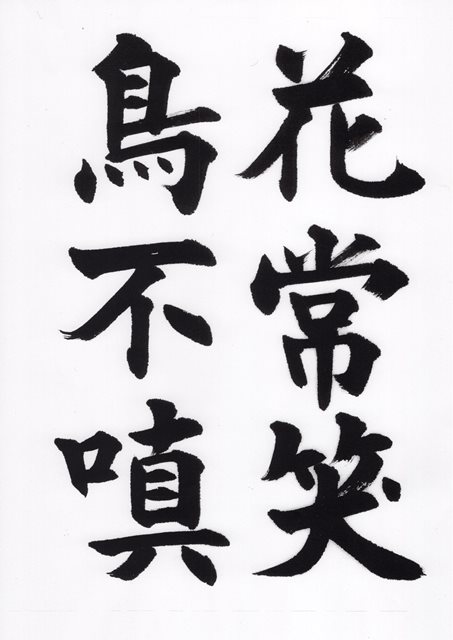 花常笑
鳥不嗔